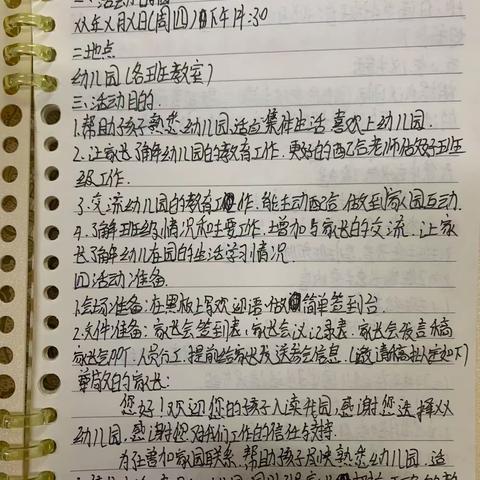 XX年X月X日(周四)下午14:30
二.地点
幼儿园(各班教室)
三.活动目的
1.帮助孩子熟悉幼儿园,适应集体生活,喜欢上幼儿园.
2.让家长了解幼儿园的教育工作,更好的配合老师做好班
级工作.
3.交流幼儿园的教育工作,能主动配合,做到家园互动.
4.了解班级情况和主要工作,增加与家长的交流,让家
长了解幼儿在园的生活学习情况.
四.活动准备.
1.会场准备:在黑板上写欢迎语,做简单签到台.
2.文件准备:家长会签到表,家长会议记录表.家长会发言稿
家长会PPT.人员分工,提前给家长发送参会信息.(邀请稿拟定如下)
尊敬的家长:
您好!欢迎您的孩子入读我园,感谢您选择XX
幼儿园,感谢您对我们工作的信任与支持.
为了增加家园联系,帮助孩子尽快熟悉幼儿园,适